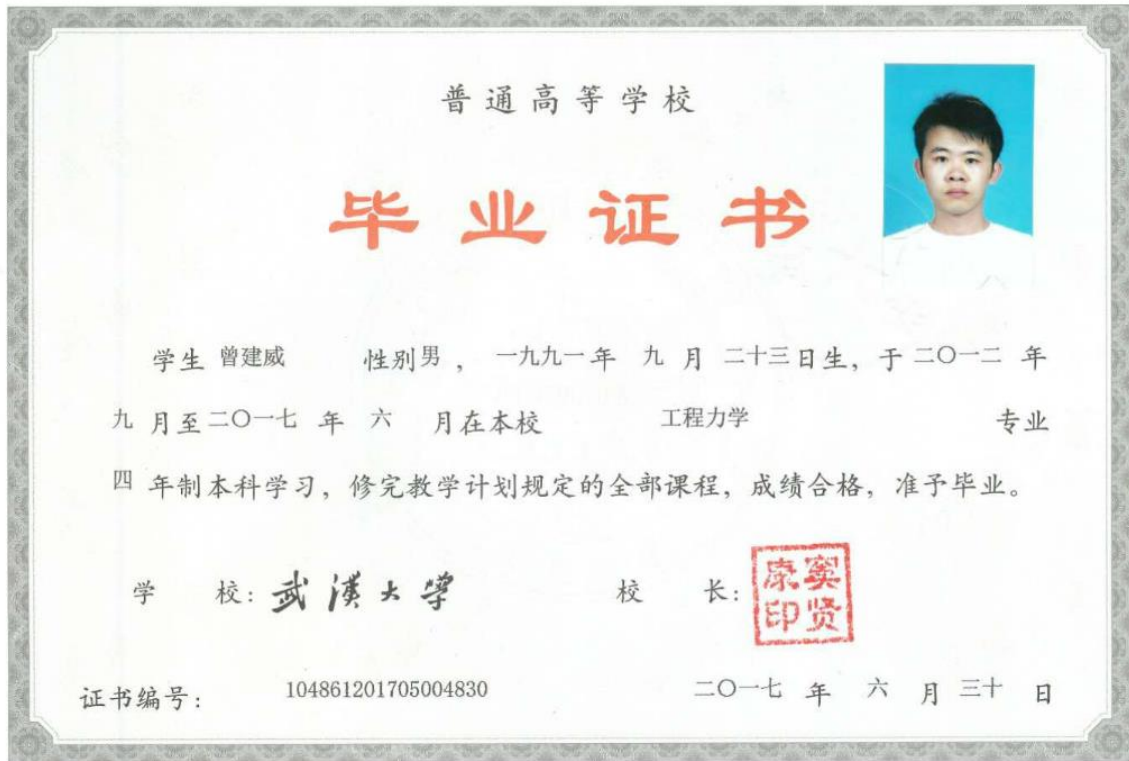 普通高等学校
毕业证书
学生 曾建威 性别 男 ， 一九九一 年 九 月 二十三 日生，于 二〇一二 年
九 月至 二〇一七 年 六 月在本校 工程力学 专业
四 年制本科学习，修完教学计划规定的全部课程，成绩合格，准予毕业。
学 校：武漢大學 校 长：窦贤康印
证书编号： 104861201705004830 二〇一七 年 六 月 三十 日